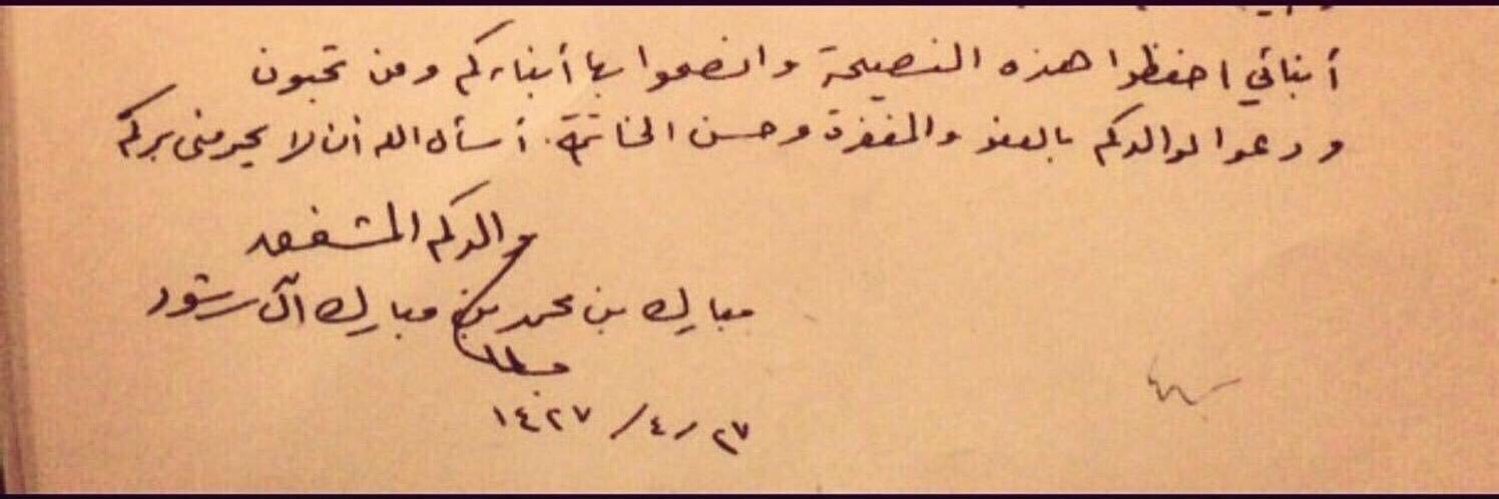 أبنائي احفظوا هذه النصيحة وانصحوا بها أبناءكم ومن تحبون
ودعوا لوالدكم بالعفو والمغفرة وحسن الخاتمة. أسأل الله أن لا يحرمني بركم
والدكم المشفق
مبارك بن محمد بن مبارك آل رشود
٢٧/٤/١٤٢٧